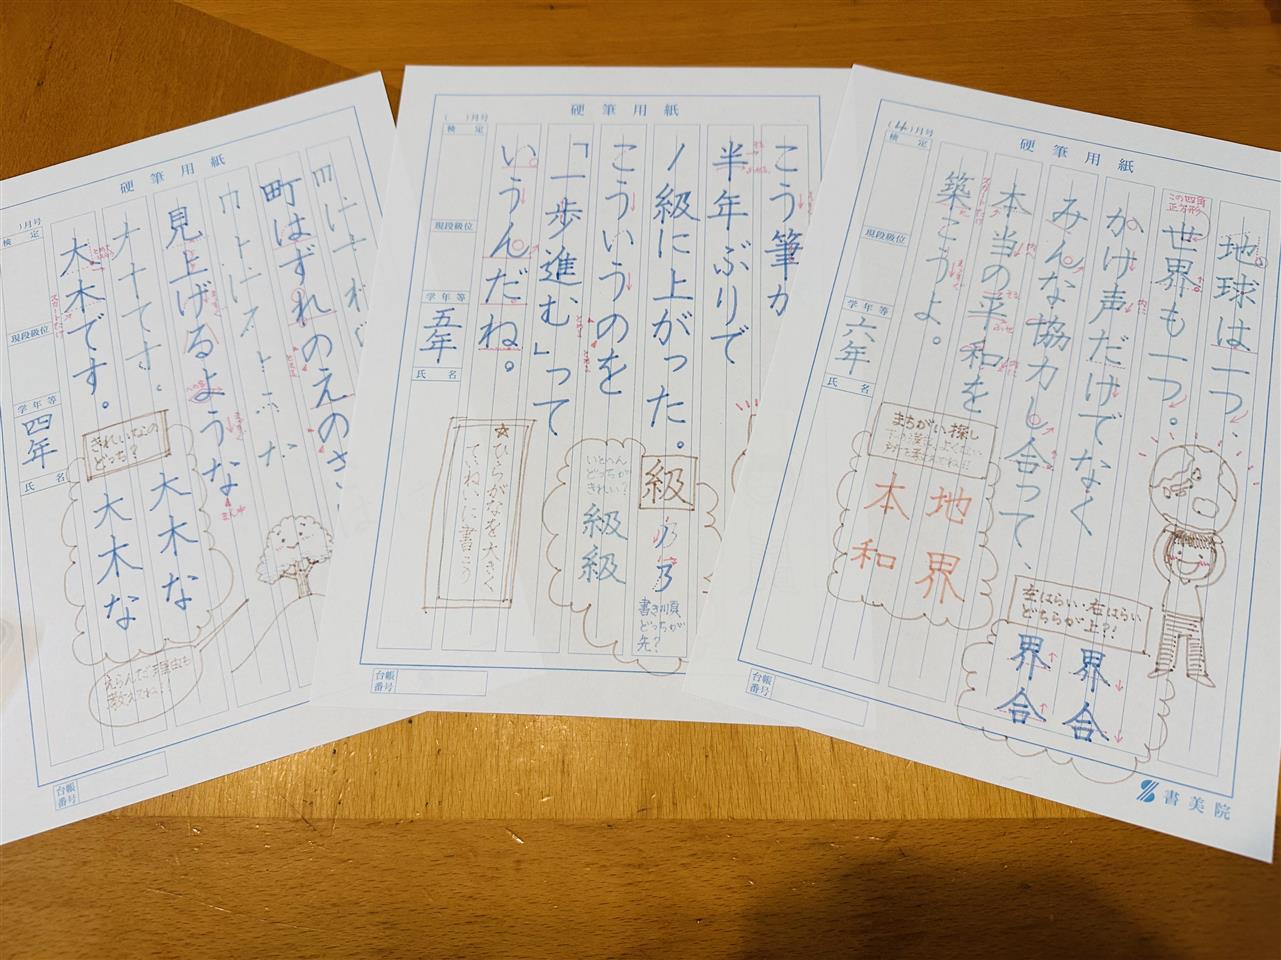 硬筆用紙
)月号
検定
現段級位
学年等
四年
氏名
町はずれのえのき
見上げるような
大木です。
きれいなの
どっち?
大木な
大木な
えらんだ理由も
教えてね!
台帳
番号
硬筆用紙
( )月号
検定
現段級位
学年等
五年
氏名
こう筆が
半年ぶりで
級に上がった。
こういうのを
「一歩進む」って
いうんだね。
級
いとへん
どっちが
きれい?
級
級
書き順
どっちが
先?
★ひらがなを大きく
ていねいに書こう
台帳
番号
硬筆用紙
(4)月号
検定
現段級位
学年等
六年
氏名
地球は一つ、
世界も一つ。
かけ声だけでなく
みんな協力し合って、
本当の平和を
築こうよ。
この四角
正方形
まちがい探し
地界
本和
左はらい・右はらい
どちらが上?!
界合
界合
台帳
番号
書美院